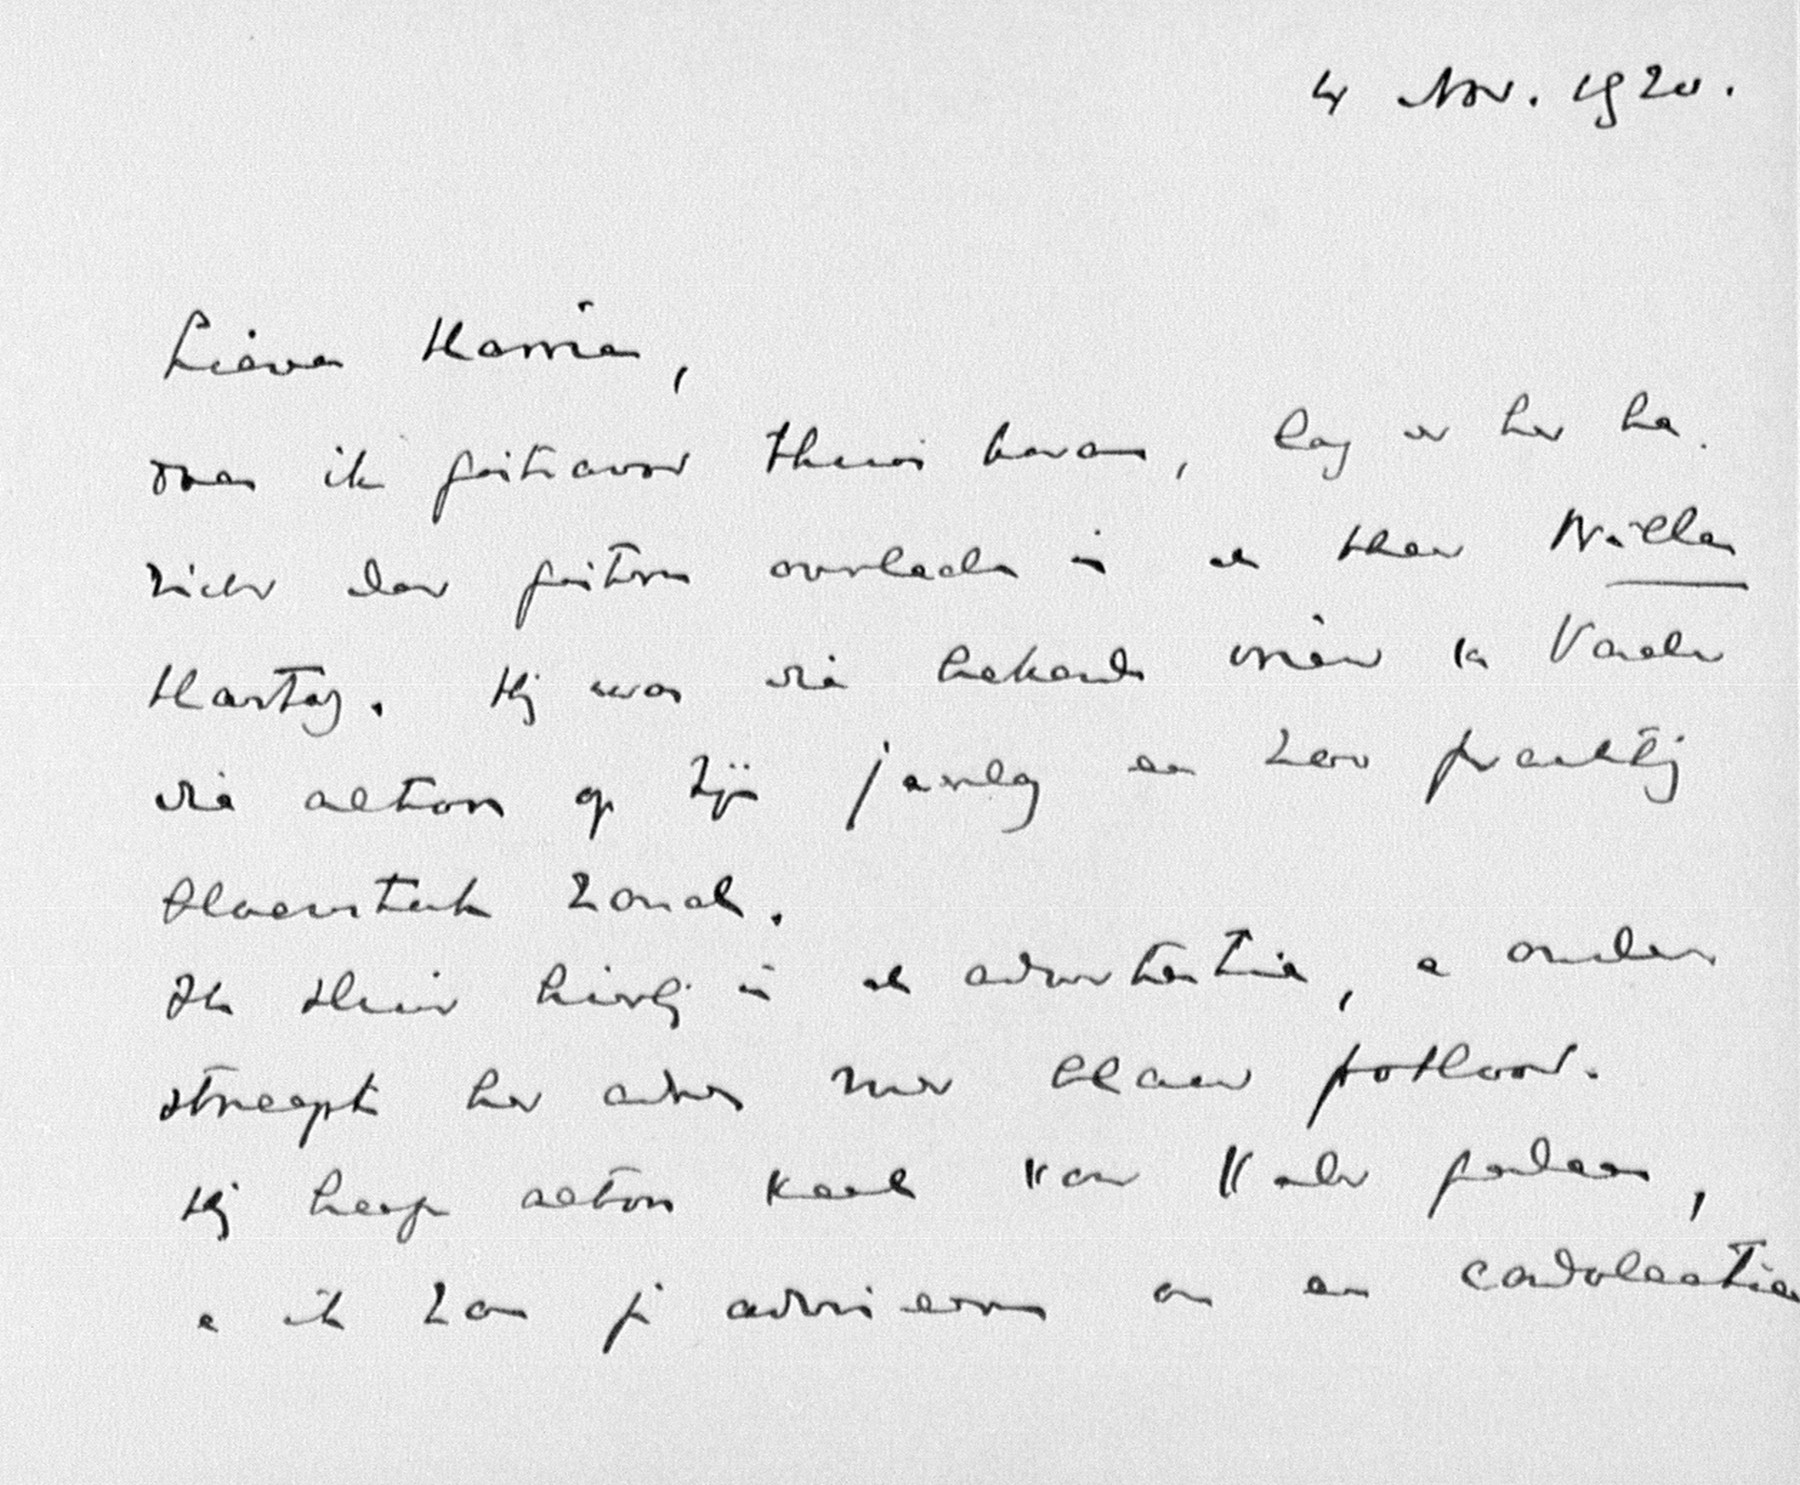 4 Nov. 1920.
Lieve Harrie,
toen ik gisteravond thuis kwam, lag er het be-
richt dat gisteren overleden is de Heer Willem
Hartog. Hij was die bekende vriend van Vader
die altijd op zijn jaardag een zeer prachtig
bloemstuk zond.
Ik sluit hierbij in de advertentie, en onder-
streepte het adres met blauw potlood.
Hij heeft altijd veel van Vader gehouden,
en ik zou je adviseeren om een condoleantie